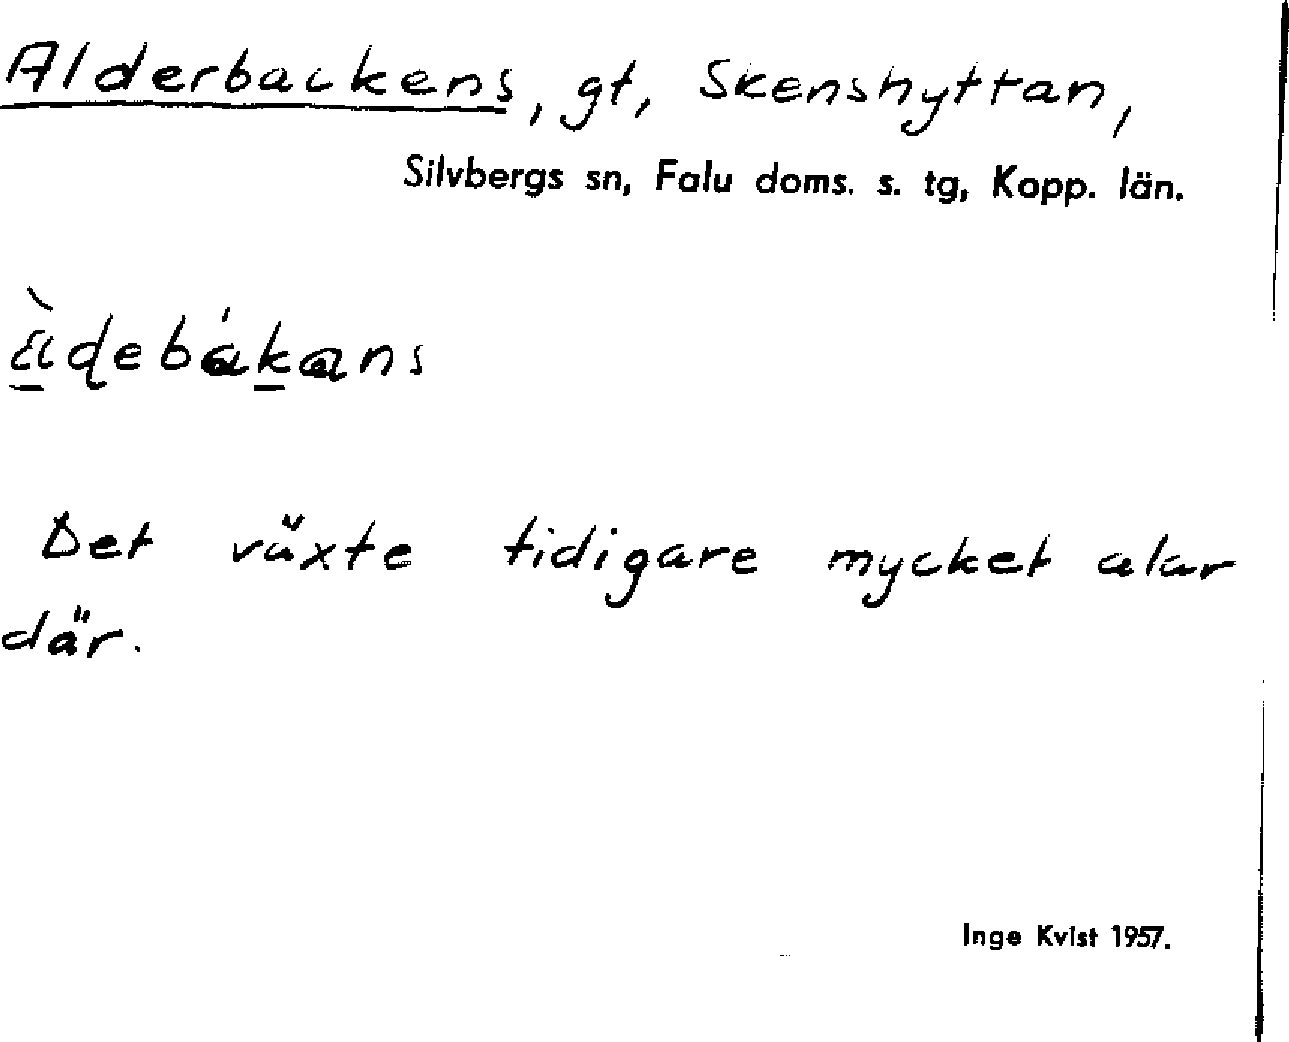 Alderbackens, gt, Skenshyttan,
Silvbergs sn, Falu doms. s. tg, Kopp. län.
Det växte tidigare mycket alar
där.
Inge Kvist 1957.